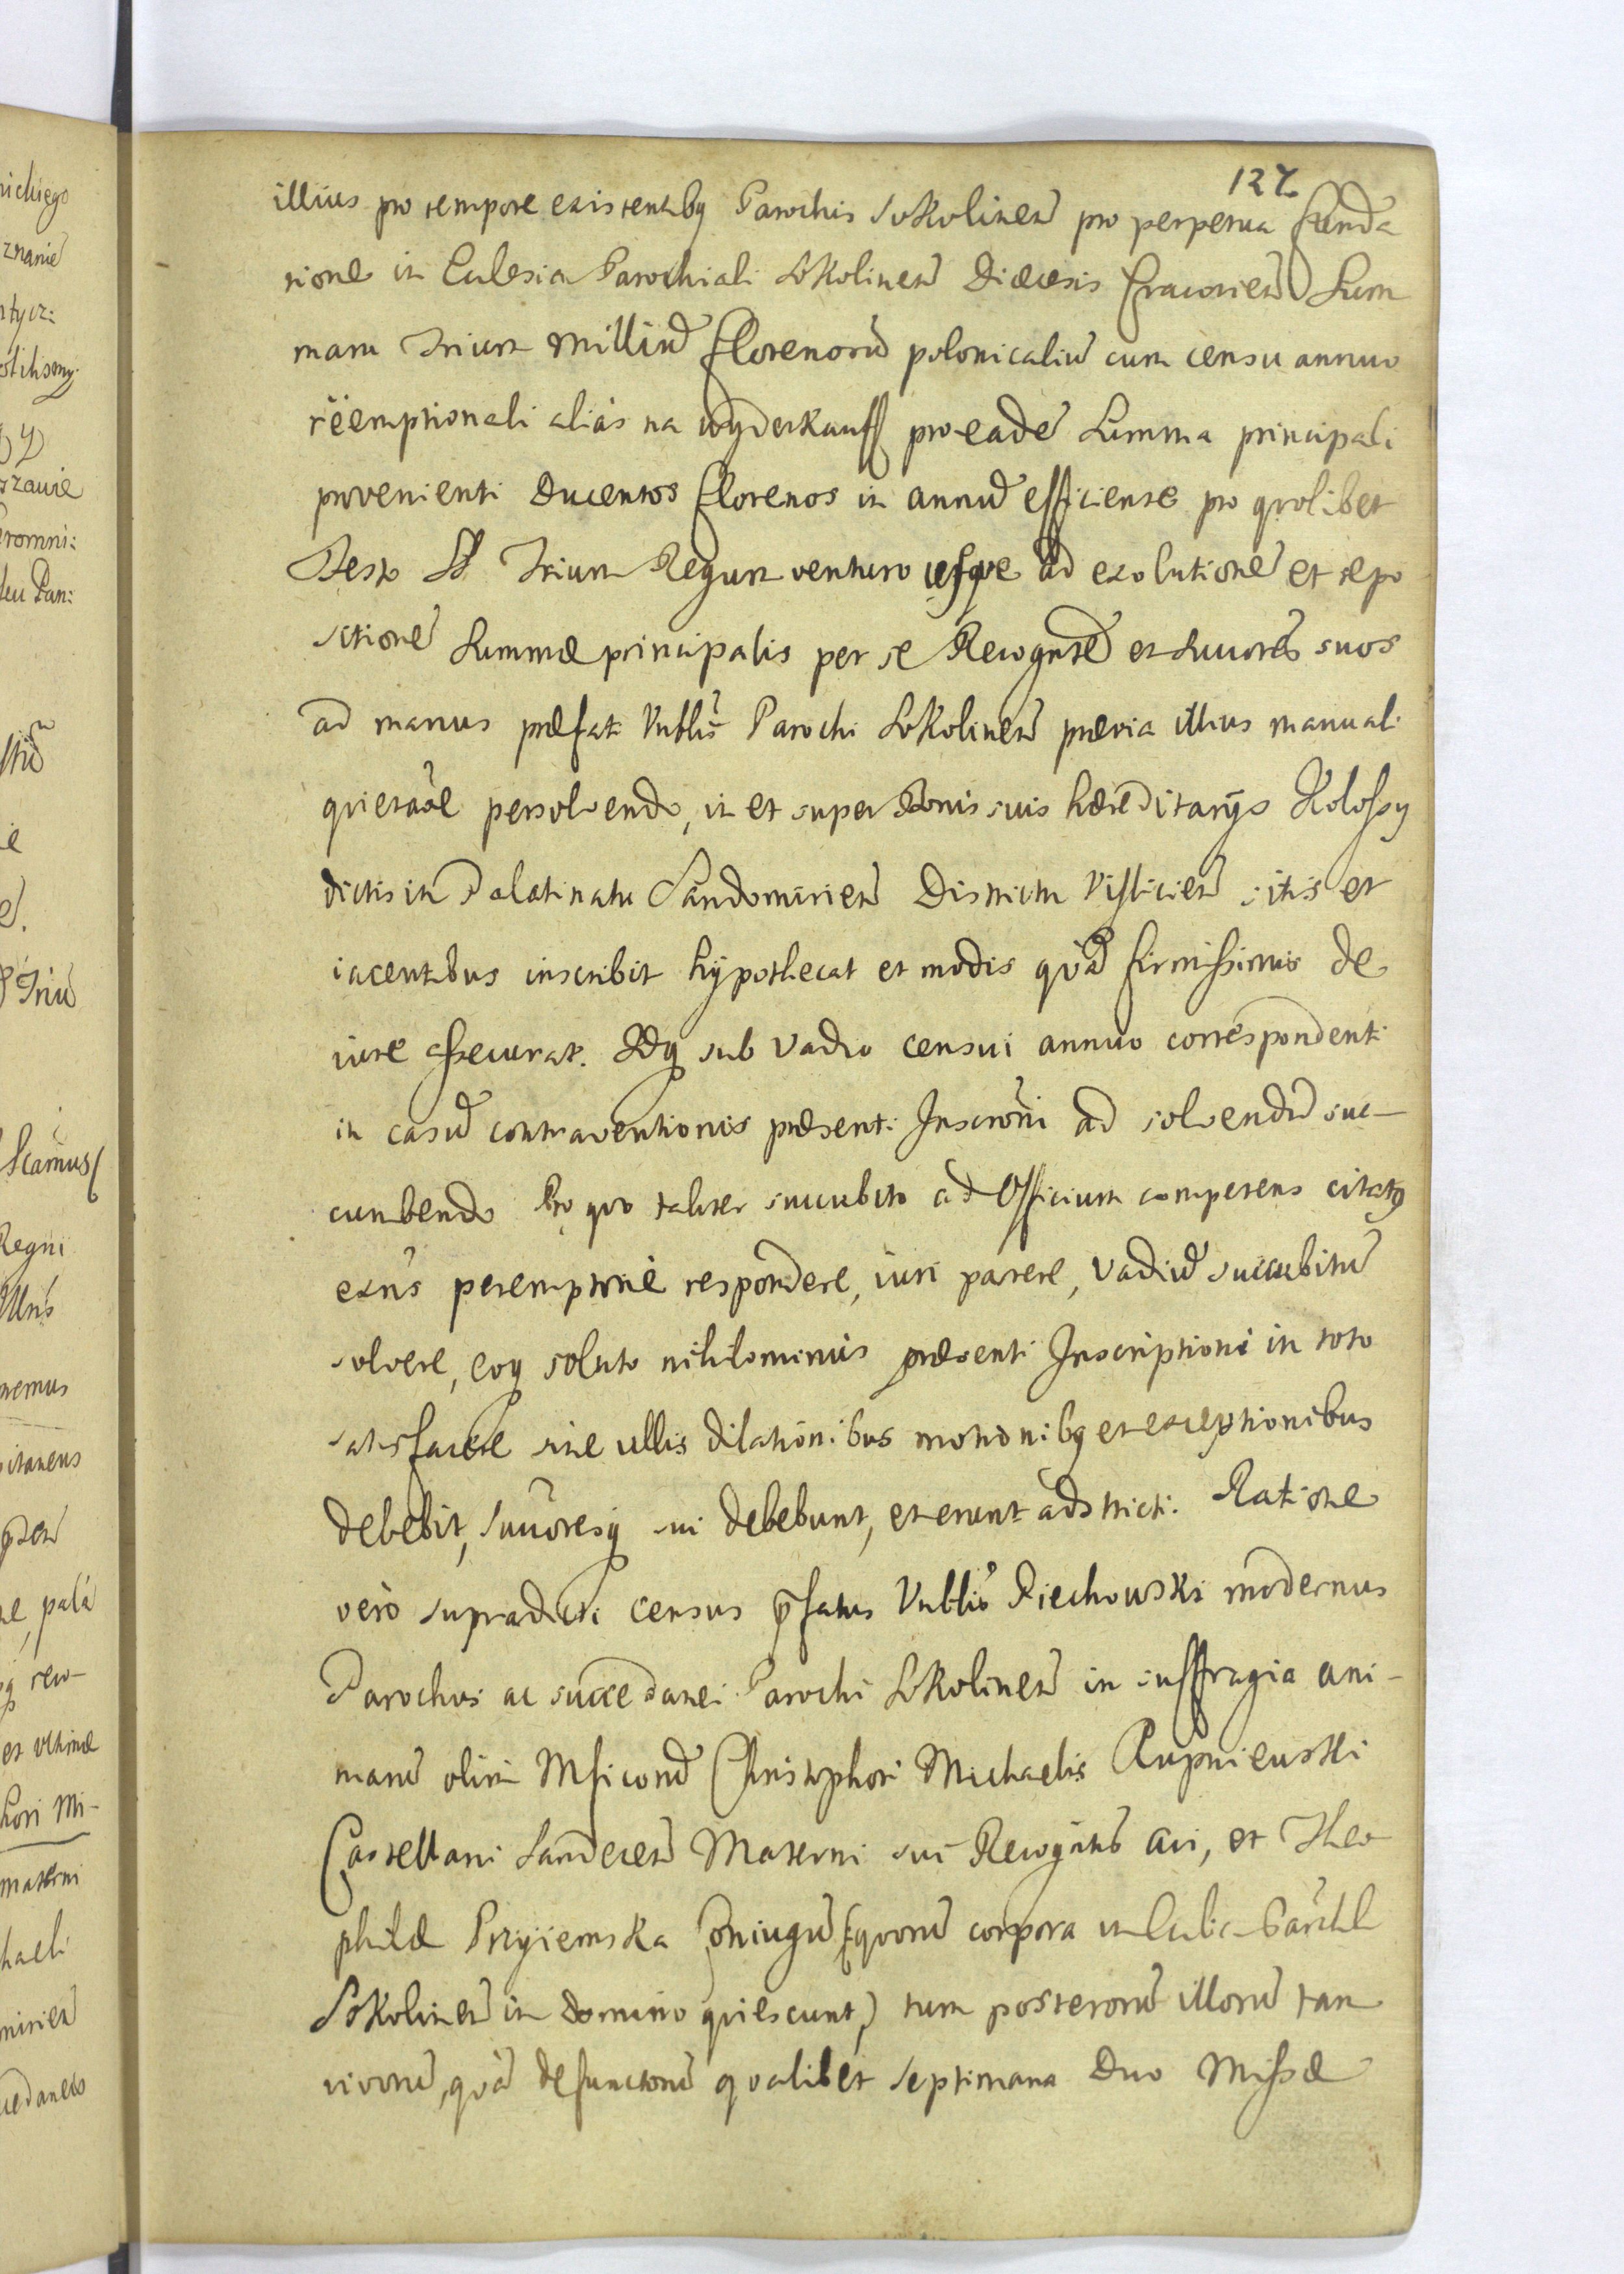 nichiego
znanie
ntycz:
zzavie
Gromni:
seu Pan:
Triu
Scamus
Regni
nemus
pitaneus
ne, pala
reco-
et ultimæ
hori Mi-
materni
haeli
mirien
cedaneo
127
illius pro tempore existentibq Parochis Sokolinen pro perpetua funda
tione in Ecclesia Parochiali Sokolinen Diœcesis Cracovien Sum
mam Trium Milliũ Florenorũ polonicaliũ cum censu annuo
rëemptionali aliàs na wyderkauff pro eadẽ Summa principali
provenienti Ducentos florenos in annũ efficiente pro quolibet
Festo SS Trium Regum venturo usque ad exolutionẽ et repo
sitionẽ Summæ principalis per se Recogntẽ et Succores suos
ad manus præfati Vnblis Parochi Sokolinen prævia illius manuali
quietaõe persolvendo, in et super Bonis suis hæreditarÿs Kolossy
dictis in Palatinatu Sandomirien Districtu Visslicien sitis et
iacentibus inscribit hÿpothecat et modis quã firmissimis de
iure assecurat. Idq sub vadio censui annuo correspondenti
in casũ contraventionis præsenti Inscrõni ad solvendũ suc-
cumbendo Pro quo taliter succubito ad Officium competens citatq
exñs peremptoriè respondere, iuri parere, vadiũ succubitũ
solvere, eoq soluto nihilominus præsenti Inscriptioni in toto
satisfacere sine ullis dilationibus motionibq et exceptionibus
debebit, succoresq sui debebunt, et erunt adstricti. Ratione
verò supradicti census pfatus Vnblis Piechowski modernus
Parochus ac succedanei Parochi Sokolinen in suffragia ani-
marũ olim Mficorũ Christophori Michaelis Rupniewski
Castellani Sandecen Materni sui Recogntis avi, et Theo
philæ Przyiemska Coniugũ (quorũ corpora in Ecclia Parãchl
Sokolinen in Domino quiescunt) tum posterorũ illorũ tam
vivorũ, quã defunctorũ qualibet septimana Duo Missæ